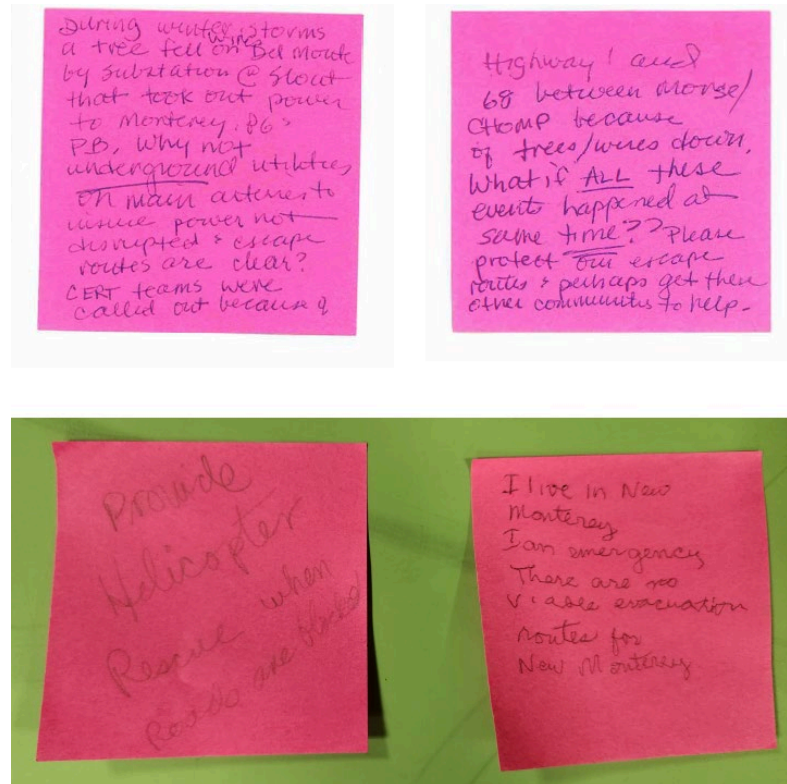 During winter storms
a tree fell on wires Bel Monte
by substation @ Sloat
that took out power
to Monterey, P6 &
P.B. Why not
underground utilities
on main arteries to
insure power not
disrupted & escape
routes are clear?
CERT teams were
called out because of
Highway 1 and
68 between Morse/
CHOMP because
of trees/wires down.
What if ALL these
events happened at
same time?? Please
protect our escape
routes & perhaps get then
other communities to help.
Provide
Helicopter
Rescue when
Roads are blocked
I live in New
Monterey
I an emergency
There are no
viable evacuation
routes for
New Monterey